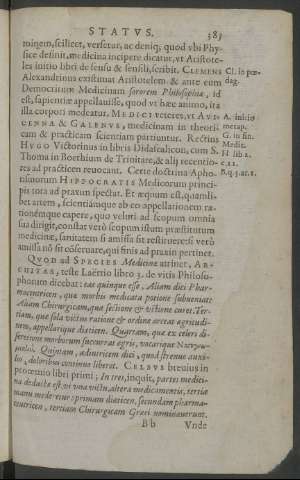 STATVS. 383
minem, scilicet, versetur, ac deniq; quod vbi Phy-
sice definit, medicina incipere dicatur, vt Aristote-
les initio libri de sensu & sensili, scribit. CLEMENS Cl. in pæ-
Alexandrinus existimat Aristotelem & ante eum dag.
Democritum Medicinam sororem Philosophiæ, id
est, sapientiæ appellauisse, quod vt hæc animo, ita
illa corpori medeatur. MEDICI veteres, vt AVI- A. initio
CENNA & GALENVS, medicinam in theori- metap.
cam & practicam scientiam partiuntur. Rectius G. in fin.
HVGO Victorinus in libris Didascalicon, cum S. Medic.
Thoma in Boethium de Trinitate, & alij recentio- H. lib. 2.
res ad practicen reuocant. Certe doctrina Apho- c. 21.
rismorum HIPPOCRATIS Medicorum princi- B. q. 5. ar. 1.
pis tota ad praxin spectat. Et æquum est, quamli-
bet artem, scientiámque ab eo appellationem, ra-
tionémque capere, quo veluti ad scopum omnia
sua dirigit, constat verò scopum istum præstitutum
medicinæ, sanitatem si amissa sit restituere: si verò
amissa nō sit cōseruare, qui finis ad praxin pertinet.
QVOD ad SPECIES Medicinæ attinet, AR-
CHITAS, teste Laërtio lib. 3. de vitis Philoso-
phorum dicebat: eas quinque esse, Aliam dici Phar-
maceuticen, quæ morbis medicata potione subueniat
Aliam Chirurgicam, qua sectione & vstione curet. Ter-
tiam, quæ sola victus ratione & ordine arceat ægritudi-
nem, appellarique diæticen. Quartam, quæ ex celeri di-
scretione morborum succurrat ægris, vocarique
Quintam, adiutricem dici, quod strenuè auxi-
lio, doloribus continuò liberat. CELSVS breuius in
proœmio libri primi; In tres, inquit, partes medici-
na deducta est, vt vna victu, altera medicamentis, tertia
manu mederetur: primam diæticen, secundam pharma-
ceuticen, tertiam Chirurgicam Græci nominauerunt.
B b Vnde